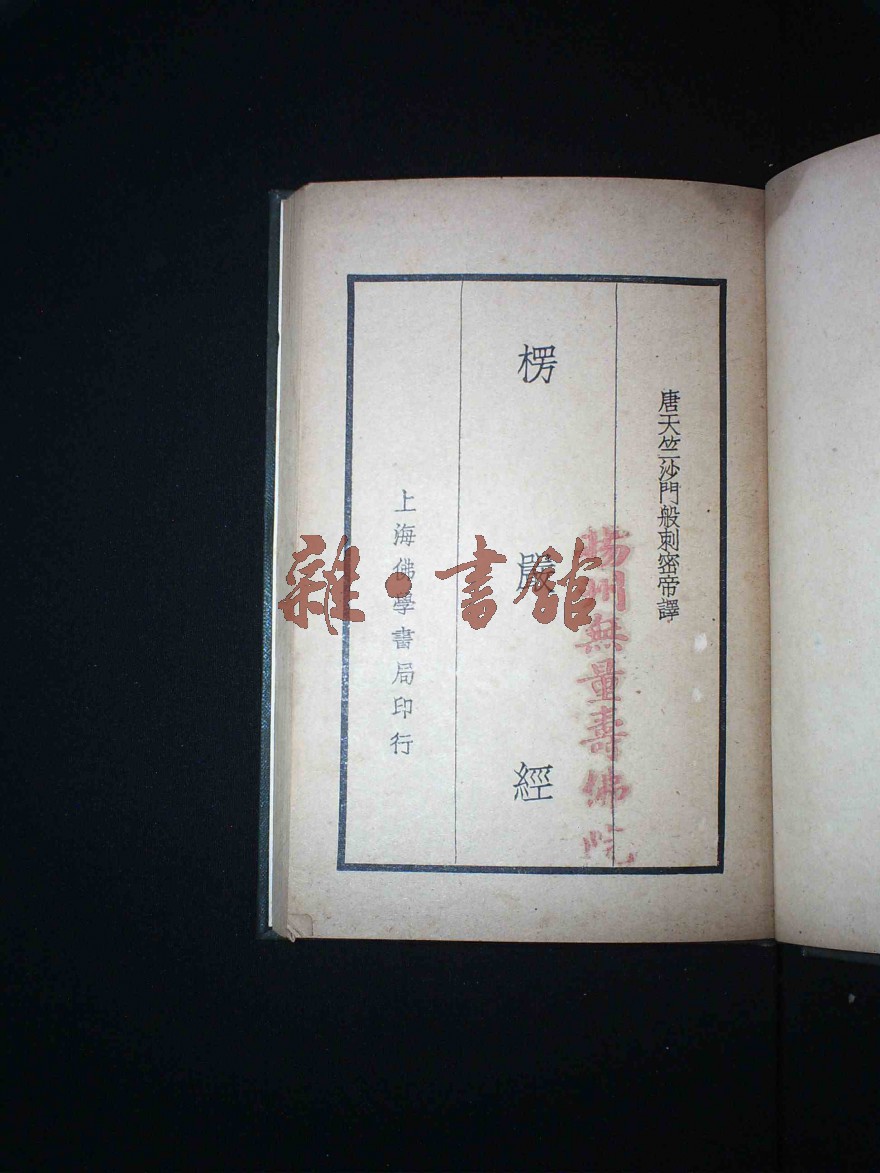 唐天竺沙門般刺密帝譯
楞嚴經
上海佛學書局印行
揚州無量壽佛院
雜·書館